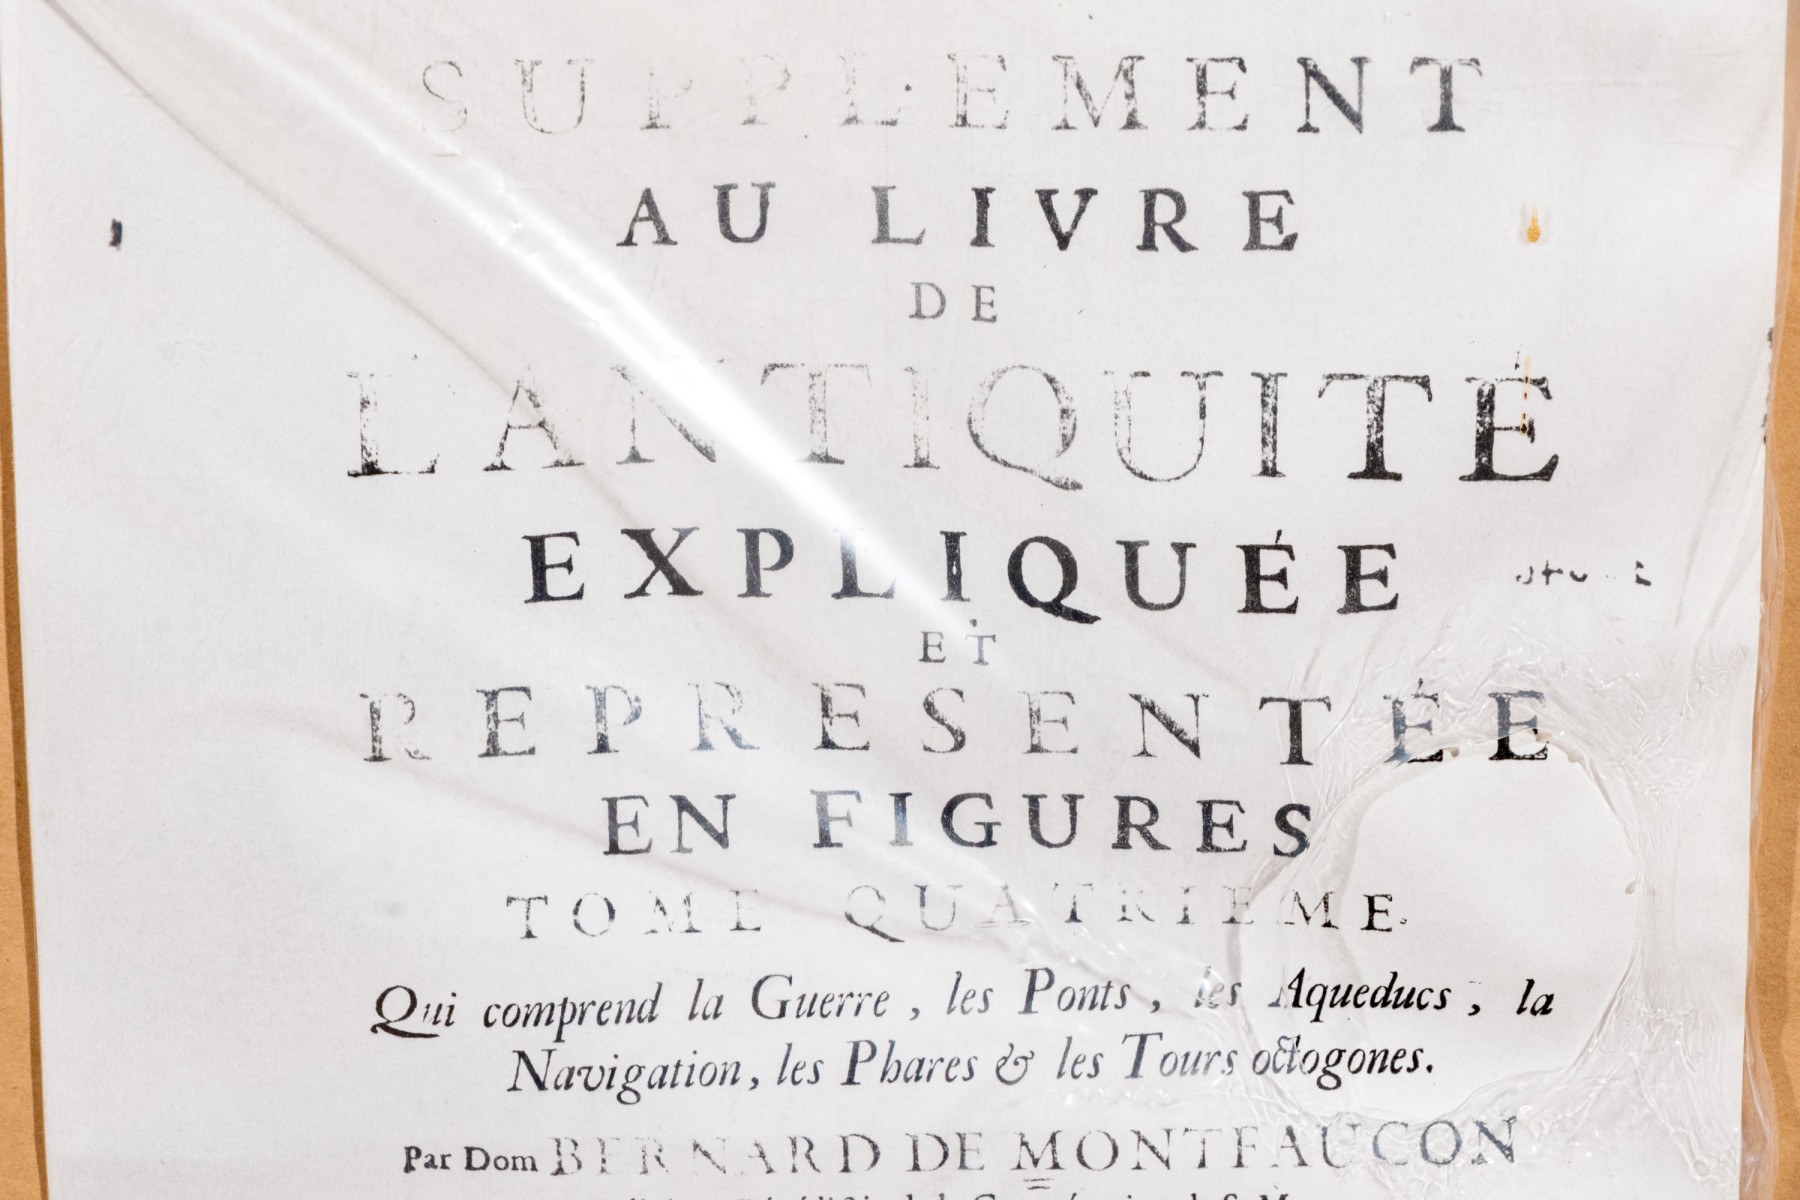 SUPPLEMENT
AU LIVRE
DE
L'ANTIQUITÉ
EXPLIQUÉE
ET
REPRESENTÉE
EN FIGURES
TOME QUATRIEME.
Qui comprend la Guerre, les Ponts, les Aqueducs, la
Navigation, les Phares & les Tours octogones.
Par Dom BERNARD DE MONTFAUCON